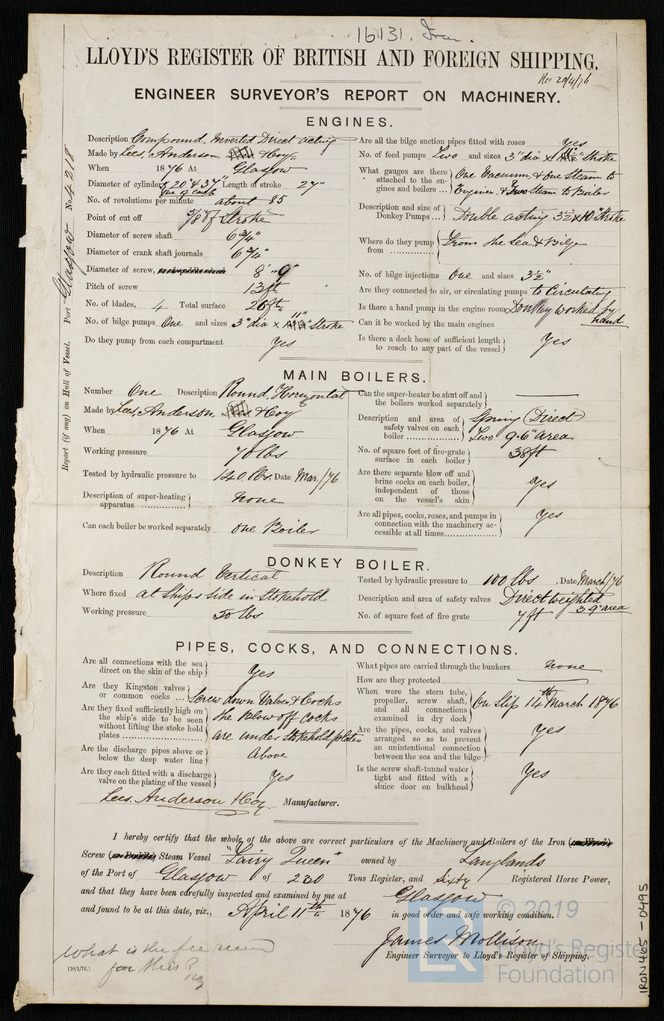 16131. Iron
LLOYD'S REGISTER OF BRITISH AND FOREIGN SHIPPING.
Rec 20/4/76
ENGINEER SURVEYOR'S REPORT ON MACHINERY.
Report (if any) on Hull of Vessel. Port Glasgow No. 4218
ENGINES.
Description Compound, Inverted Direct acting
Made by Lees, Anderson & Coy.
When 1876 At Glasgow
Diameter of cylinders 20" & 37" Length of stroke 27"
one of each
No. of revolutions per minute about 85
Point of cut off 3/8 of Stroke
Diameter of screw shaft 6 3/4"
Diameter of crank shaft journals 6 3/4"
Diameter of screw, 8' 9"
Pitch of screw 13 ft
No. of blades, 4 Total surface 26 ft.
No. of bilge pumps One and sizes 3" dia x 11" Stroke
Do they pump from each compartment Yes
Are all the bilge suction pipes fitted with roses Yes
No. of feed pumps Two and sizes 3" dia x 11" Stroke
What gauges are there attached to the engines and boilers One Vacuum, & one Steam to Engines, & Two Steam to Boiler
Description and size of Donkey Pumps Double acting 3½ x 10 Stroke
Where do they pump from From the Sea & Bilge
No. of bilge injections One and sizes 3½"
Are they connected to air, or circulating pumps to Circulating
Is there a hand pump in the engine room Donkey worked by hand
Can it be worked by the main engines
Is there a deck hose of sufficient length to reach to any part of the vessel Yes
MAIN BOILERS.
Number One Description Round, Horizontal
Made by Lees, Anderson, & Coy
When 1876 At Glasgow
Working pressure 70 lbs
Tested by hydraulic pressure to 140 lbs. Date Mar/76
Description of super-heating apparatus none
Can each boiler be worked separately one Boiler
Can the super-heater be shut off and the boilers worked separately
Description and area of safety valves on each boiler Spring (Direct) Two 9.6" area
No. of square feet of fire-grate surface in each boiler 38 ft
Are there separate blow off and brine cocks on each boiler, independent of those on the vessel's sides Yes
Are all pipes, cocks, roses, and pumps in connection with the machinery accessible at all times Yes
DONKEY BOILER.
Description Round Vertical
Where fixed at Ships side in Stokehold
Working pressure 50 lbs
Tested by hydraulic pressure to 100 lbs , Date March/76
Description and area of safety valves Direct weighted 3.9" area
No. of square feet of fire grate 7 ft
PIPES, COCKS, AND CONNECTIONS.
Are all connections with the sea direct on the skin of the ship Yes
Are they Kingston valves or common cocks Screw down Valves & Cocks
Are they fixed sufficiently high on the ship's side to be seen without lifting the stoke hold plates the blow off cocks are under Stokehold plates
Are the discharge pipes above or below the deep water line Above
Are they each fitted with a discharge valve on the plating of the vessel Yes
What pipes are carried through the bunkers none
How are they protected
When were the stern tube, propeller, screw shaft, and all connections examined in dry dock On Slip 14th March 1876
Are the pipes, cocks, and valves arranged so as to prevent an unintentional connection between the sea and the bilge Yes
Is the screw shaft-tunnel water tight and fitted with a sluice door on bulkhead Yes
Lees, Anderson & Coy. Manufacturer.
I hereby certify that the whole of the above are correct particulars of the Machinery and Boilers of the Iron
Screw Steam Vessel "Fairy Queen" owned by Langlands
of the Port of Glasgow of 280 Tons Register, and sixty Registered Horse Power,
and that they have been carefully inspected and examined by me at Glasgow
and found to be at this date, viz., April 11th 1876 in good order and safe working condition.
James Mollison
Engineer Surveyor to Lloyd's Register of Shipping.
What is the fee
for this?
© 2019
Lloyd's Register
Foundation
IRON 465-0495